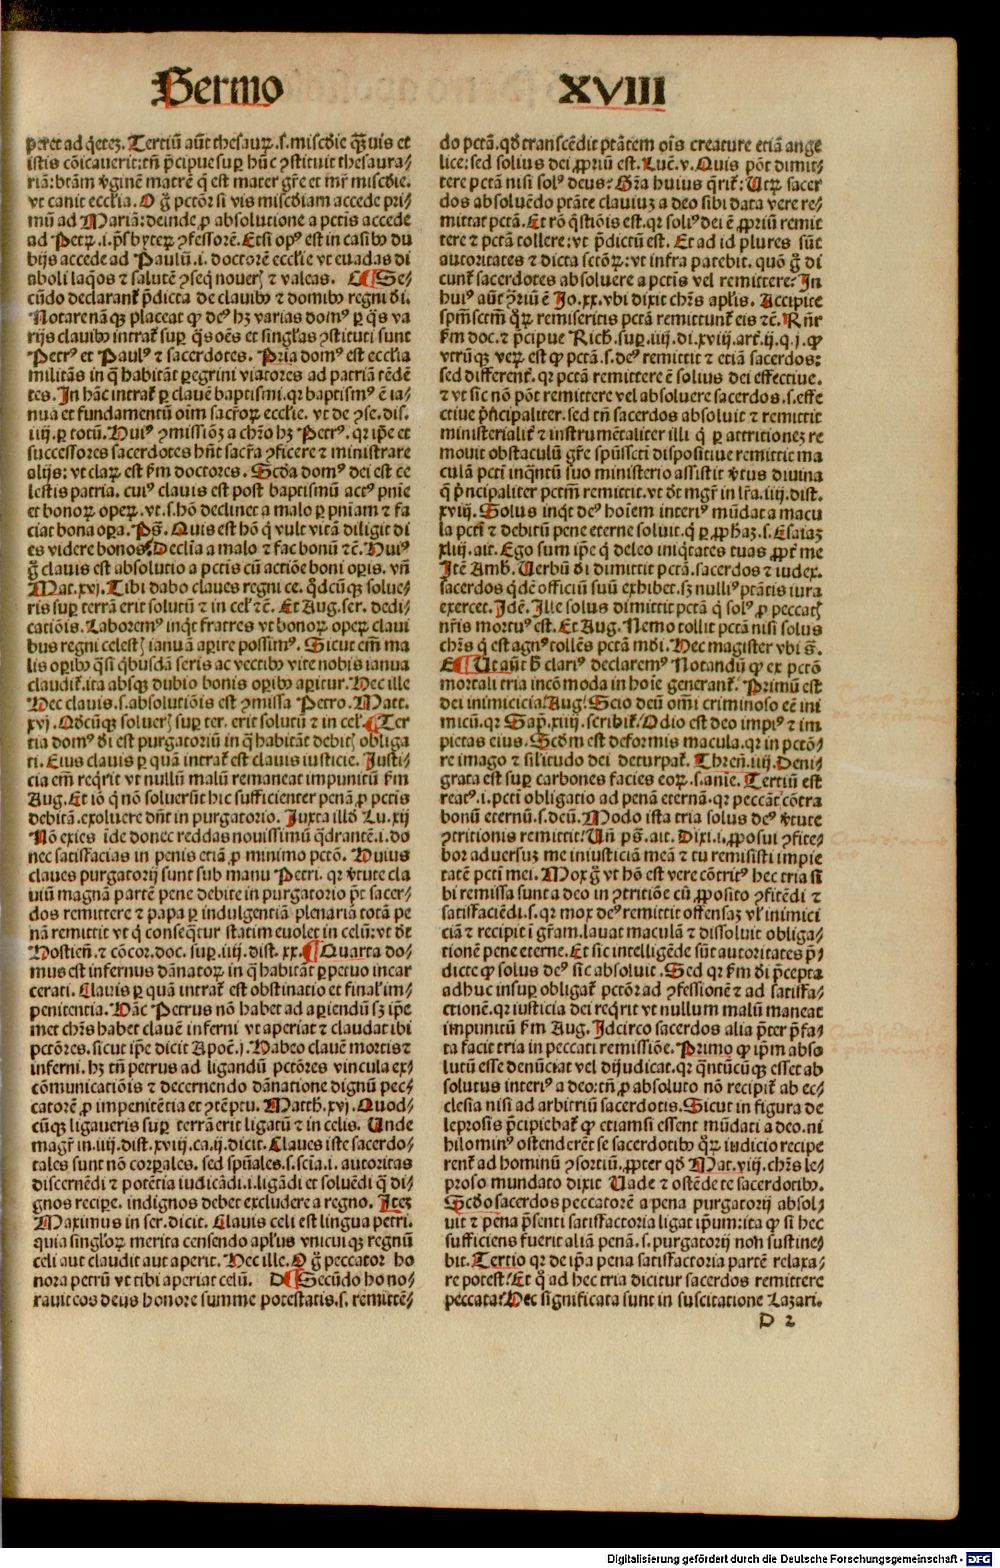 Sermo XVIII
peret ad q̃etez. Tertiũ aũt thesauꝝ .s. miscd̃ie q̃ꝫuis et
istis cõicauerit: tñ p̃cipue suꝑ hũc ꝯstituit thesaura-
riã: btãm v̓ginẽ matrẽ q̃ est mater gr̃e et mr̃ miscd̃ie.
vt canit eccl̃ia. O g̃ pctõr si vis miscd̃iam accede pri-
mũ ad Mariã: deinde ꝓ absolutione a pctis accede
ad Petꝝ .i. p̃sbyteꝝ ꝯfessorẽ. Etsi opꝰ est in casibꝰ du
bijs accede ad Paulũ .i. doctorẽ eccl̃ie vt euadas di
aboli laq̃os ⁊ salutẽ ꝯseq̃ nouer̃ ⁊ valeas. C ¶ Se-
cũdo declarant̃ p̃dicta de clauibꝰ ⁊ domibꝰ regni d̃i.
Notare nãqꝫ placeat ꝙ deꝰ hꝫ varias domꝰ ꝑ q̃s va
rijs clauibꝰ intrat̃ suꝑ q̃s oẽs et singl̃as ꝯstituti sunt
Petrꝰ et Paulꝰ ⁊ sacerdotes. Pria domꝰ est eccl̃ia
militãs in q̃ habitãt ꝑegrini viatores ad patriã tẽdẽ
tes. In hãc intrat̃ ꝑ clauẽ baptismi. qr baptismꝰ ẽ ia-
nua et fundamentũ oĩm sacr̃oꝝ eccl̃ie. vt de ꝯse. dis.
iiij. ꝑ totũ. Huiꝰ ꝯmissiõꝫ a chr̃o hꝫ Petrꝰ. qr ip̃e et
successores sacerdotes hñt sacr̃a ꝯficere ⁊ ministrare
alijs: vt claꝝ est s̃m doctores. Scd̃a domꝰ dei est ce
lestis patria. cuiꝰ clauis est post baptismũ actꝰ pñie
et bonoꝝ opeꝝ. vt .s. hõ declinet a malo ꝑ pñiam ⁊ fa
ciat bona oꝑa. Ps̃. Quis est hõ q̃ vult vitã diligit di
es videre bonos. Declĩa a malo ⁊ fac bonũ ⁊c̃. Huiꝰ
g̃ clauis est absolutio a pctis cũ actiõe boni oꝑis. vñ
Mat. xvj. Tibi dabo claues regni ce. q̃dcũqꝫ solue-
ris suꝑ terrã erit solutũ ⁊ in cel̃ ⁊c̃. Et Aug. ser. dedi-
catiõis. Laboremꝰ inq̃t fratres vt bonoꝝ opeꝝ claui
bus regni celest̃ ianuã aꝑire possimꝰ. Sicut em̃ ma
lis oꝑibꝰ q̃si q̃busdã seris ac vectibꝰ vite nobis ianua
claudit̃. ita absqꝫ dubio bonis oꝑibꝰ aꝑitur. Hec ille
Hec clauis .s. absolutiõis est ꝯmissa Petro. Matt.
xvj. Qd̃cũqꝫ soluer̃ suꝑ ter. erit solutũ ⁊ in cel̃. ¶ Ter
tia domꝰ d̃i est purgatoriũ in q̃ habitãt debit̃ obliga
ti. Eius clauis ꝑ quã intrat̃ est clauis iusticie. Justi-
cia em̃ req̃rit vt nullũ malũ remaneat impunitũ s̃m
Aug. Et iõ q̃ nõ soluerũt hic sufficienter penã ꝓ pctis
debitã. exoluere dñt in purgatorio. Juxta illd̃ Lu. xij
Nõ exies ĩde donec reddas nouissimũ q̃drantẽ .i. do
nec satisfacias in penis etiã ꝓ minimo pctõ. Huius
claues purgatorij sunt sub manu Petri. qr v̓tute cla
uiũ magnã partẽ pene debite in purgatorio p̃t sacer-
dos remittere ⁊ papa ꝑ indulgentiã plenariã totã pe
nã remittit vt q̃ conseq̃tur statim euolet in celũ: vt d̃t
Hostieñ. ⁊ cõcor. doc. suꝑ .iiij. dist. xx. ¶ Quarta do-
mus est infernus dãnatoꝝ in q̃ habitãt ꝑpetuo incar
cerati. Clauis ꝑ quã intrat̃ est obstinatio et final̃ im-
penitentia. Hãc Petrus nõ habet ad aꝑiendũ sꝫ ip̃e
met chr̃s habet clauẽ inferni vt aperiat ⁊ claudat ibi
pctõres. sicut ip̃e dicit Apoc̃. j. Habeo clauẽ mortis ⁊
inferni. hꝫ tñ petrus ad ligandũ pctõres vincula ex-
cõmunicatiõis ⁊ decernendo dãnatione dignũ pec-
catorẽ ꝓ impenitẽtia et ꝯtẽptu. Matth. xvj. Quod-
cũqꝫ ligaueris suꝑ terrã erit ligatũ ⁊ in celis. Unde
magr̃ in .iiij. dist. xviij. ca. ij. dicit. Claues iste sacerdo-
tales sunt nõ corꝑales. sed spũales .s. scĩa .i. autoritas
discernẽdi ⁊ potẽtia iudicãdi .i. ligãdi et soluẽdi q̃ di-
gnos recipe. indignos debet excludere a regno. Itez
Maximus in ser. dicit. Clauis celi est lingua petri.
quia singl̃oꝝ merita censendo apl̃us vnicuiqꝫ regnũ
celi aut claudit aut aperit. Hec ille. O g̃ peccator ho
nora petrũ vt tibi aperiat celũ. D ¶ Secũdo hono-
rauit eos deus honore summe potestatis .s. remittẽ-
do pctã. qd̃ transcẽdit ptãtem oĩs creature etiã ange
lice: sed solius dei ꝓpriũ est. Luc̃. v. Quis põt dimit-
tere pctã nisi solꝰ deus? Gr̃a huius q̃rit̃: Utꝝ sacer
dos absoluẽdo ptãte clauiuꝫ a deo sibi data vere re-
mittat pctã. Et rõ q̃stiõis est. qr soliꝰ dei ẽ ꝓpriũ remit
tere ⁊ pctã tollere: vt p̃dictũ est. Et ad id plures sũt
autoritates ⁊ dicta sctõꝝ: vt infra patebit. quõ g̃ di
cunt̃ sacerdotes absoluere a pctis vel remittere? In
huiꝰ aũt ꝯr̃iũ ẽ Jo. xx. vbi dixit chr̃s apl̃is. Accipite
spm̃sctm̃ q̃ꝝ remiseritis pctã remittunt̃ eis ⁊c̃. Rñr̃
s̃m doc. ⁊ p̃cipue Rich. suꝑ .iiij. di. xviij. art̃. ij. q. j. ꝙ
vtrũqꝫ veꝝ est ꝙ pctã .s. deꝰ remittit ⁊ etiã sacerdos:
sed different̃. qr pctã remittere ẽ solius dei effectiue.
⁊ vt sic nõ põt remittere vel absoluere sacerdos .s. effe
ctiue p̃ncipaliter. sed tñ sacerdos absoluit ⁊ remittit
ministerialit̃ ⁊ instrumẽtaliter illi q̃ ꝑ attritionez re
mouit obstaculũ gr̃e spũssctĩ dispositiue remittit ma
culã pcti inq̃ntũ suo ministerio assistit v̓tus diuina
q̃ p̃ncipaliter pctm̃ remittit. vt d̃t mgr̃ in lr̃a. iiij. dist.
xviij. Solus inq̃t deꝰ hoĩem interiꝰ mũdat a macu
la pcti ⁊ debitũ pene eterne soluit. q̃ ꝑ ꝓphaꝫ .s. Esaiaꝫ
xliij. ait. Ego sum ip̃e q̃ deleo iniq̃tates tuas ꝓpt̃ me
Itẽ Amb. Uerbũ d̃i dimittit pctã. sacerdos ⁊ iudex.
sacerdos q̃dẽ officiũ suũ exhibet. sꝫ nulliꝰ ptãtis iura
exercet. Idẽ. Ille solus dimittit pctã q̃ solꝰ ꝓ peccat̃
nr̃is mortuꝰ est. Et Aug. Nemo tollit pctã nisi solus
chr̃s q̃ est agnꝰ tollẽs pctã mũdi. Hec magister vbi s̃.
E ¶ Ut aũt h̃ clariꝰ declaremꝰ Notandũ ꝙ ex pctõ
mortali tria incõmoda in hoĩe generant̃. Primũ est
dei inimicicia. Aug. Scio deũ om̃i criminoso eẽ ini
micũ. qr Sap̃. xiiij. scribit̃. Odio est deo impiꝰ ⁊ im
pietas eius. Scd̃m est deformis macula. qr in pctõ-
re imago ⁊ sil̃itudo dei deturpat̃. Thren̄. iiij. Deni-
grata est suꝑ carbones facies eoꝝ .s. anĩe. Tertiũ est
reatꝰ .i. pcti obligatio ad penã eternã. qr peccãt cõtra
bonũ eternũ .s. deũ. Modo ista tria solus deꝰ v̓tute
ꝯtritionis remittit. Uñ ps̃. ait. Dixi .i. ꝓposui ꝯfite-
bor aduersuꝫ me iniusticiã meã ⁊ tu remisisti impie
tatẽ pcti mei. Mox g̃ vt hõ est vere cõtritꝰ hec tria si
bi remissa sunt a deo in ꝯtritiõe cũ ꝓposito ꝯfitẽdi ⁊
satisfaciẽdi .s. qr mox deꝰ remittit offensaꝫ vl̃ inimici
ciã ⁊ recipit ĩ gr̃am. lauat maculã ⁊ dissoluit obliga-
tionẽ pene eterne. Et sic intelligẽde sũt autoritates p̃-
dicte ꝙ solus deꝰ sic absoluit. Sed qr s̃m d̃i p̃cepta
adhuc insuꝑ obligat̃ pctõr ad ꝯfessionẽ ⁊ ad satisfa-
ctionẽ. qr iusticia dei req̃rit vt nullum malũ maneat
impunitũ s̃m Aug. Idcirco sacerdos alia p̃ter p̃fa-
ta facit tria in peccati remissiõe. Primo ꝙ ip̃m abso
lutũ esse denũciat vel dijudicat. qr q̃ntũcũqꝫ esset ab
solutus interiꝰ a deo: tñ ꝓ absoluto nõ recipit̃ ab ec-
clesia nisi ad arbitriũ sacerdotis. Sicut in figura de
leprosis p̃cipiebat̃ ꝙ etiamsi essent mũdati a deo. ni
hilominꝰ ostenderẽt se sacerdotibꝰ q̃ꝝ iudicio recipe
rent̃ ad hominũ ꝯsortiũ. ꝓpter qd̃ Mat. viij. chr̃s le-
proso mundato dixit Uade ⁊ ostẽde te sacerdotibꝰ.
Scd̃o sacerdos peccatorẽ a pena purgatorij absol-
uit ⁊ pena p̃senti satisfactoria ligat ip̃um: ita ꝙ si hec
sufficiens fuerit aliã penã .s. purgatorij non sustine-
bit. Tertio qr de ip̃a pena satisfactoria partẽ relaxa-
re potest. Et q̃ ad hec tria dicitur sacerdos remittere
peccata. Hec significata sunt in suscitatione Lazari.
D 2
Digitalisierung gefördert durch die Deutsche Forschungsgemeinschaft - DFG